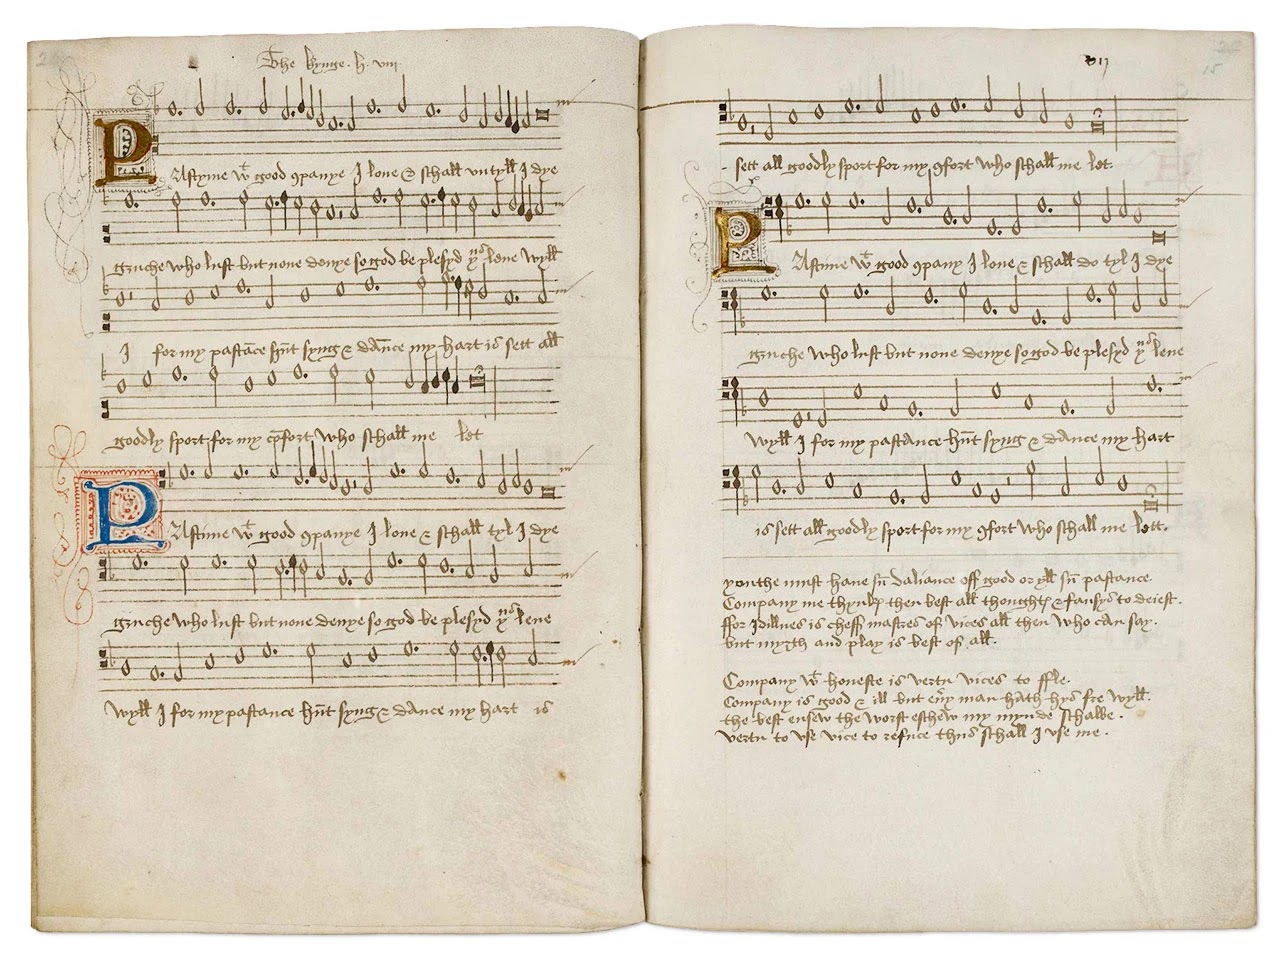 The kynge .h. viii
PAstyme wt good ꝯpanye I love & schall untyll I dye
gruche who lust but none denye so god be plesyd yus leve wyll
I for my pastāce hūt syng & dānce my hart is sett all
goodly sport for my cōfort who schall me let
PAstime wt good ꝯpanye I love & schall tyl I dye
gruche who lust but none denye so god be plesyd yus leve
wyll I for my pastance hūt syng & dance my hart is
vij
15
sett all goodly sport for my ꝯfort who schall me let.
PAstime wt good ꝯpany I love & schall do tyl I dye
gruche who lust but none denye so god be plesyd yus leve
wyll I for my pastance hūt syng & dance my hart
is sett all goodly sport for my ꝯfort who schall me lett.
youthe must have sū daliance off good or yll sū pastance.
Company me thynkꝭ then best all thoughtꝭ & fansys to deiest.
ffor Idillnes is cheff mastres of vices all then who can say.
but myrth and play is best of all.
Company wt honeste is vertu vices to ffle.
Company is good & ill but evry man hath hys fre wyll.
the best ensew the worst eschew my mynde schalbe.
vertu to use vice to refuce thus schall I use me.